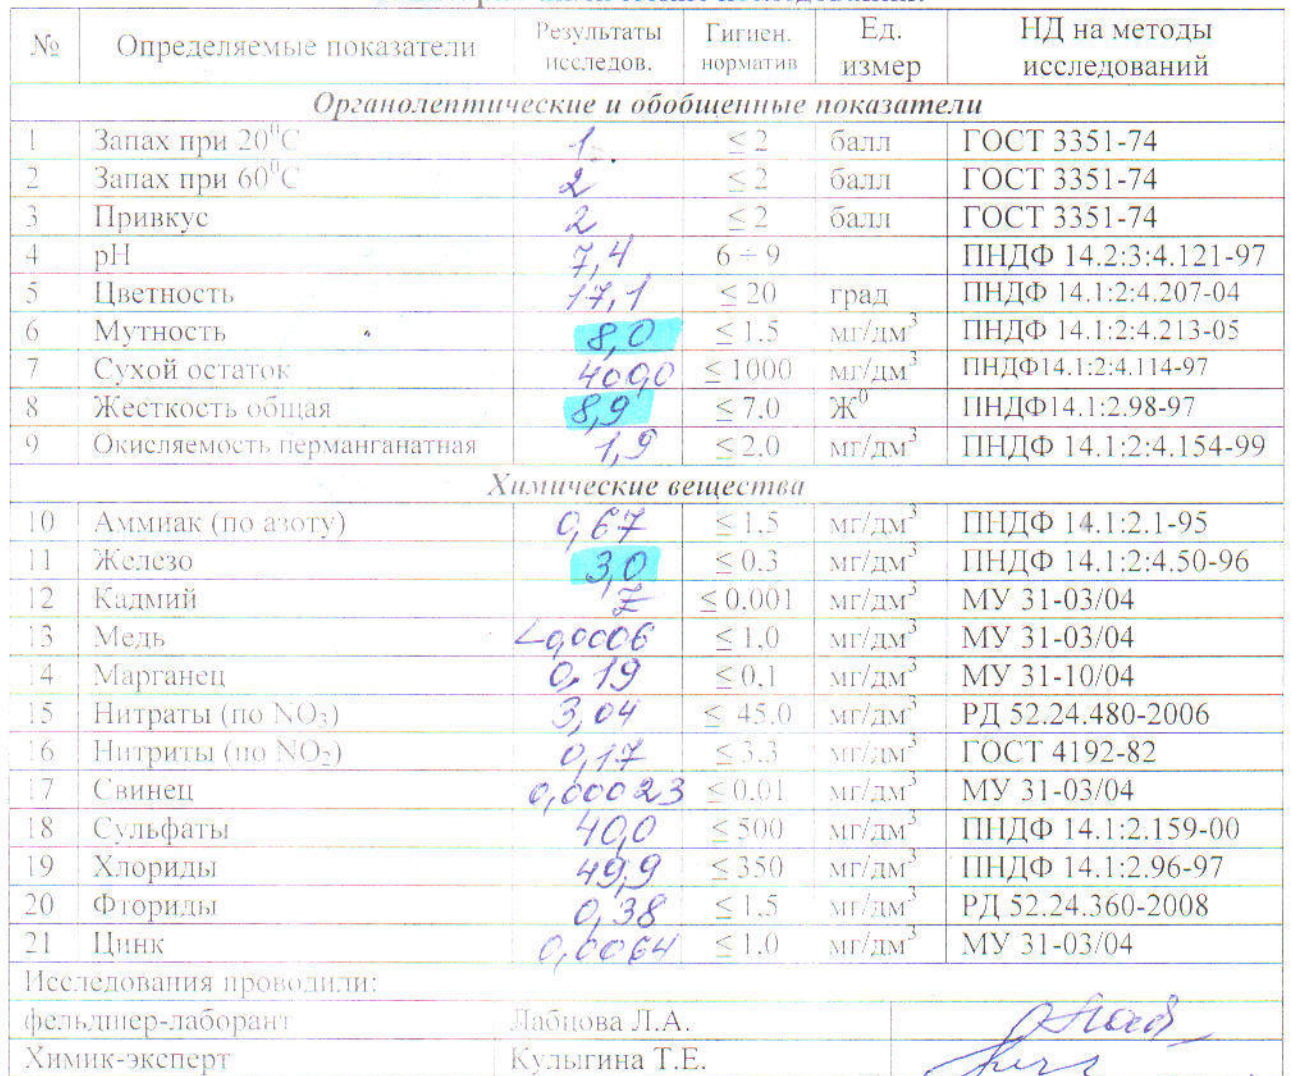 № Определяемые показатели Результаты исследов. Гигиен. норматив Ед. измер НД на методы исследований
Органолептические и обобщенные показатели
1 Запах при 20⁰С 1 ≤ 2 балл ГОСТ 3351-74
2 Запах при 60⁰С 2 ≤ 2 балл ГОСТ 3351-74
3 Привкус 2 ≤ 2 балл ГОСТ 3351-74
4 pH 7,4 6 ÷ 9 ПНДФ 14.2:3:4.121-97
5 Цветность 17,1 ≤ 20 град ПНДФ 14.1:2:4.207-04
6 Мутность 8,0 ≤ 1.5 мг/дм³ ПНДФ 14.1:2:4.213-05
7 Сухой остаток 400,0 ≤ 1000 мг/дм³ ПНДФ14.1:2:4.114-97
8 Жесткость общая 8,9 ≤ 7.0 Ж⁰ ПНДФ14.1:2.98-97
9 Окисляемость перманганатная 1,9 ≤ 2.0 мг/дм³ ПНДФ 14.1:2:4.154-99
Химические вещества
10 Аммиак (по азоту) 0,67 ≤ 1.5 мг/дм³ ПНДФ 14.1:2.1-95
11 Железо 3,0 ≤ 0.3 мг/дм³ ПНДФ 14.1:2:4.50-96
12 Кадмий ≤ 0.001 мг/дм³ МУ 31-03/04
13 Медь <0,0006 ≤ 1,0 мг/дм³ МУ 31-03/04
14 Марганец 0,19 ≤ 0,1 мг/дм³ МУ 31-10/04
15 Нитраты (по NO₃) 3,04 ≤ 45.0 мг/дм³ РД 52.24.480-2006
16 Нитриты (по NO₂) 0,17 ≤ 3.3 мг/дм³ ГОСТ 4192-82
17 Свинец 0,00023 ≤ 0.01 мг/дм³ МУ 31-03/04
18 Сульфаты 40,0 ≤ 500 мг/дм³ ПНДФ 14.1:2.159-00
19 Хлориды 49,9 ≤ 350 мг/дм³ ПНДФ 14.1:2.96-97
20 Фториды 0,38 ≤ 1,5 мг/дм³ РД 52.24.360-2008
21 Цинк 0,0064 ≤ 1.0 мг/дм³ МУ 31-03/04
Исследования проводили:
фельдшер-лаборант Лабцова Л.А.
Химик-эксперт Кулыгина Т.Е.